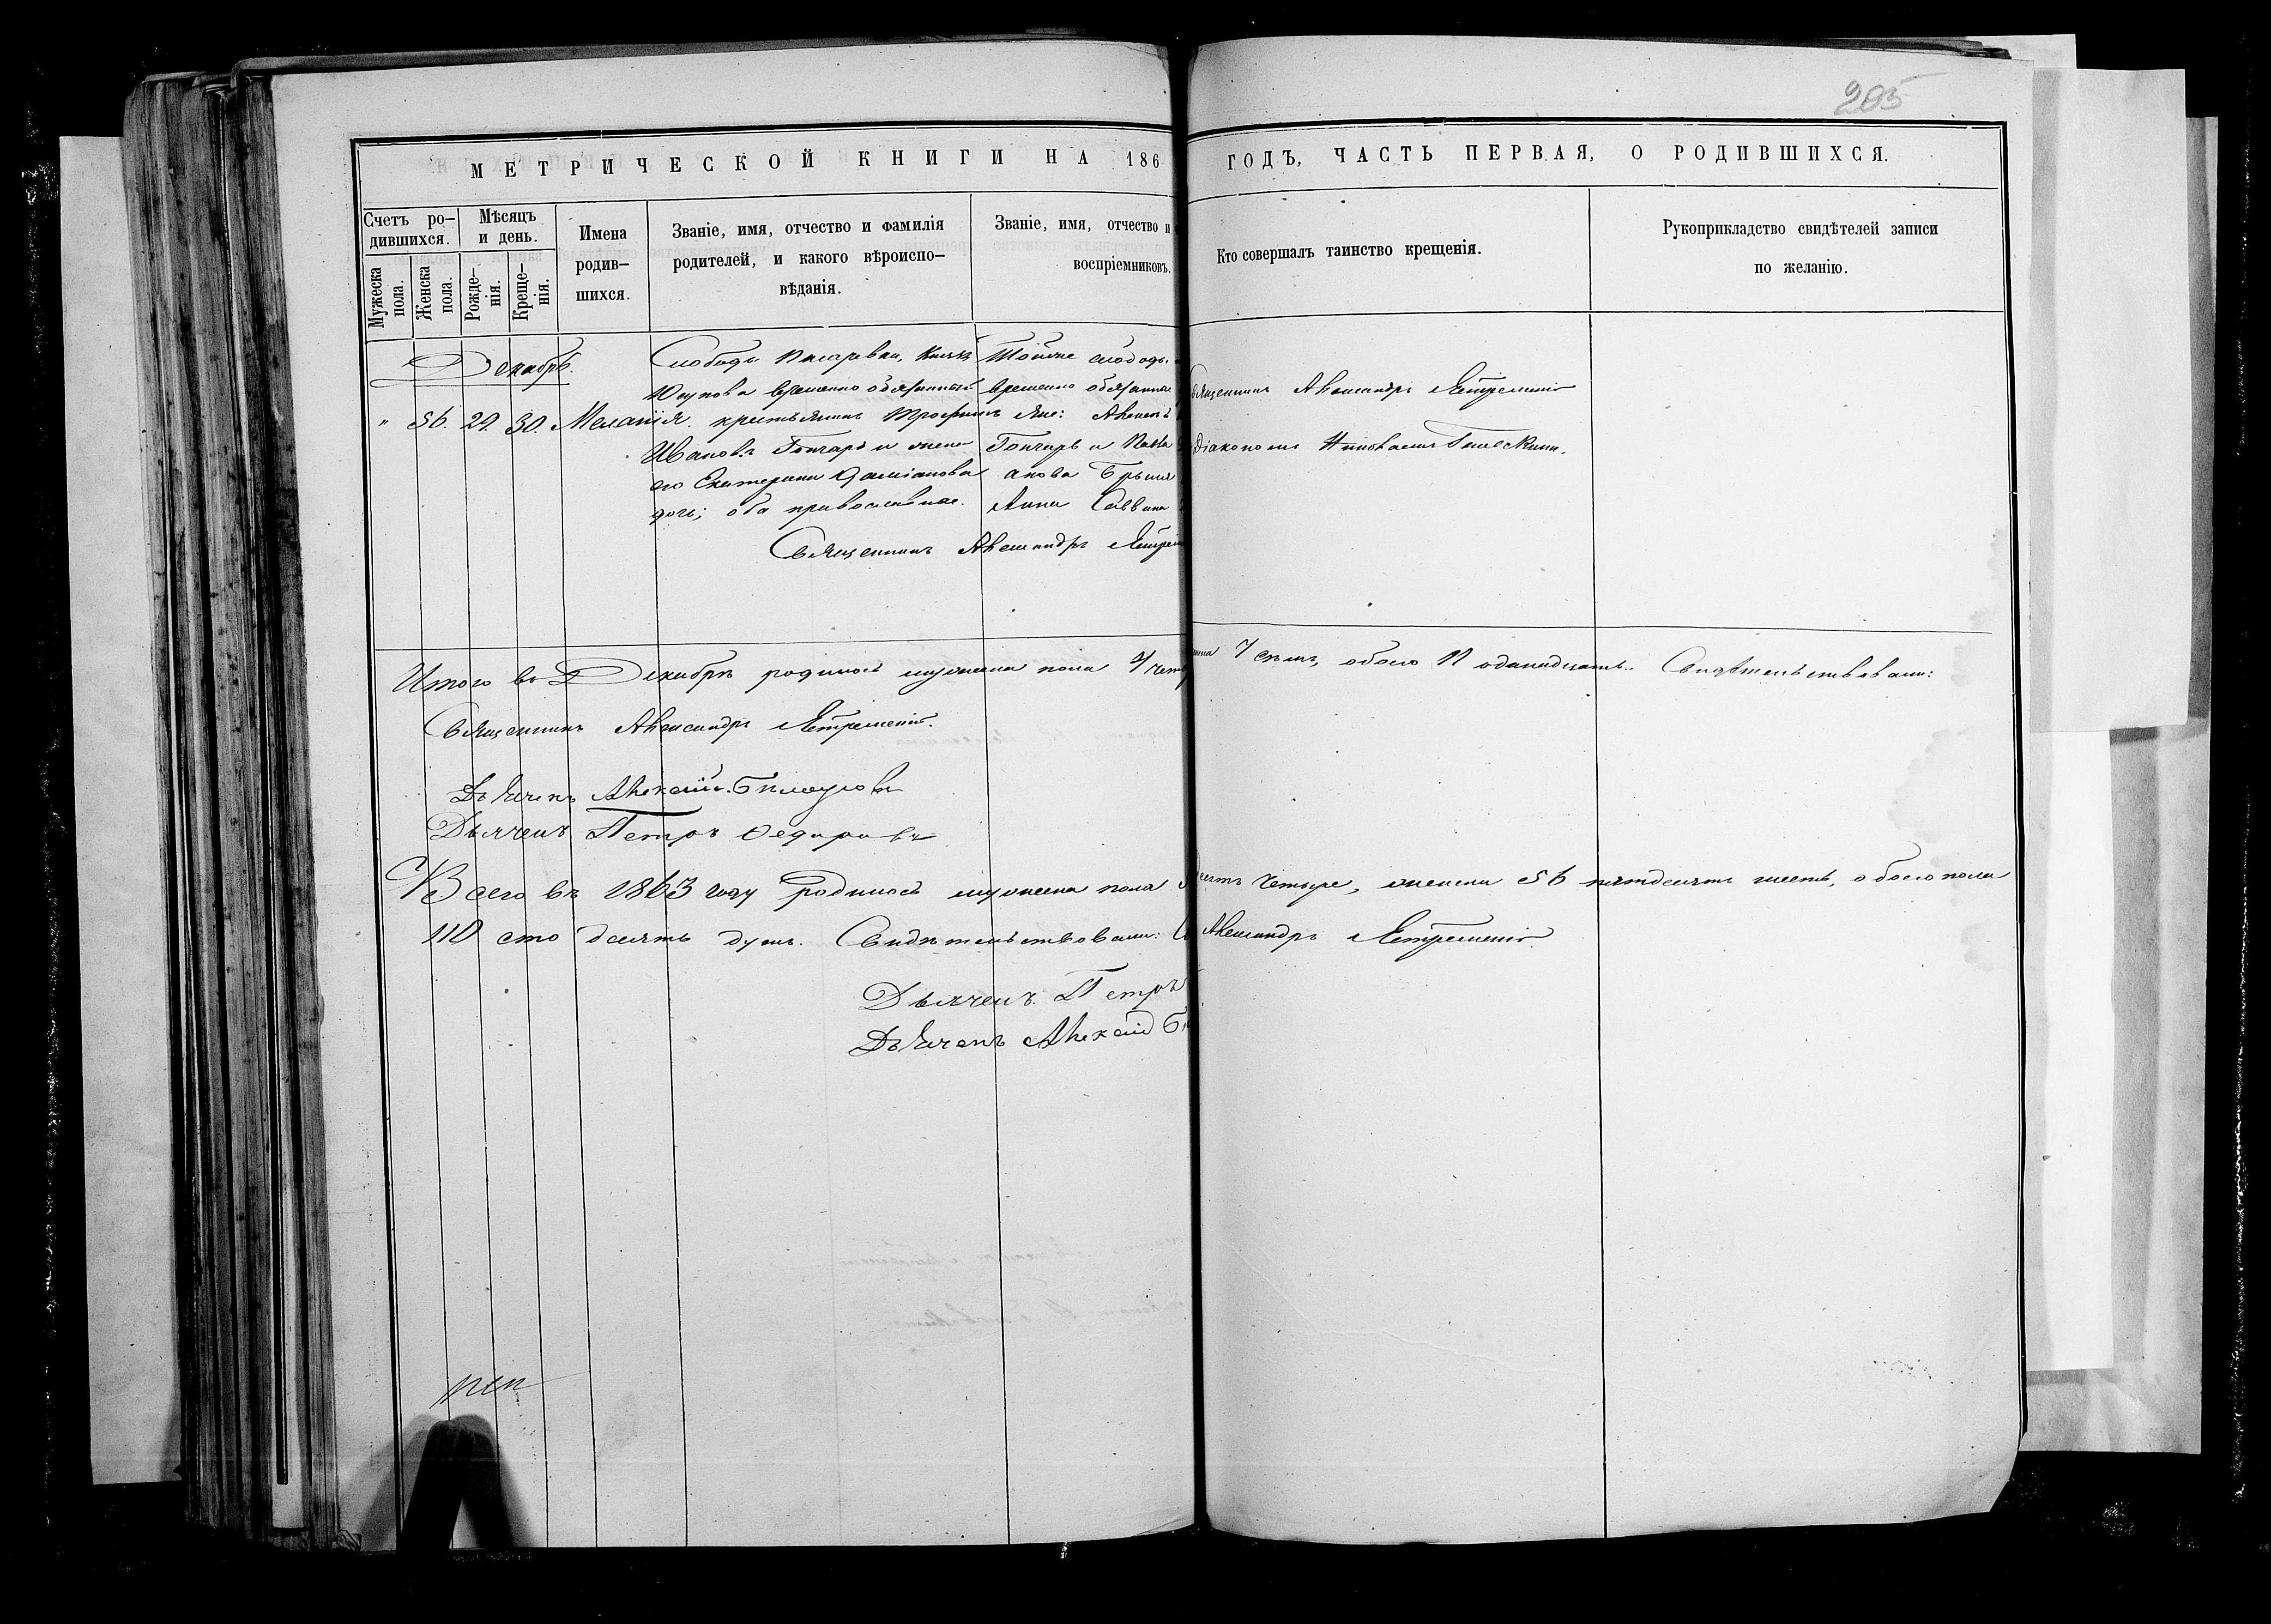 205
МЕТРИЧЕСКОЙ КНИГИ НА 186 ГОДЪ, ЧАСТЬ ПЕРВАЯ, О РОДИВШИХСЯ.
Счетъ ро–
дившихся.
Мужеска
пола.
Женска
пола.
Мѣсяцъ
и день.
Рожде–
нія.
Креще–
нія.
Имена
родив–
шихся.
Званіе, имя, отчество и фамилія
родителей, и какого вѣроиспо–
вѣданія.
Званіе, имя, отчество и
воспріемниковъ.
Кто совершалъ таинство крещенія.
Рукоприкладство свидѣтелей записи
по желанію.
Декабрь.
" 56. 29. 30. Меланія.
Слободы Писаревки, Князя
Юсупова временно обязанный
крестьянинъ Трофимъ
Ивановъ Гончаръ и жена
его Екатерина Даміанова
дочь; оба православные.
Тойже слободы
временно обязанные
Гончаръ и
Анна Саввина
Священникъ Александръ
Священникъ Александръ
Діакономъ Николаемъ
Итого въ Декабрѣ родилось мужеска пола 4 7 семь, обоего 11 одинадцать. Свидѣтельствовали:
Священникъ Александръ
Дьячекъ Алексій Билоусовъ
Дьячекъ Петръ Федоровъ
Всего въ 1863 году родилось мужеска пола десятъ четыре, женска 56 пятдесятъ шесть, обоего пола
110 сто десять душъ. Свидѣтельствовали: Александръ
Дьячекъ Петръ
Дьячекъ Алексій